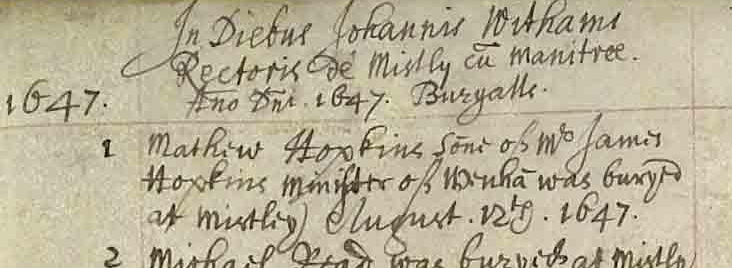 In Diebus Johannis Withams
Rectoris de Mistly cū Manitree.
1647. Ano Dni. 1647. Buryalls.
1 Mathew Hopkins sone of Mr James
Hopkins Minister of Wenhā was buryed
at Mistley August. 12th. 1647.
2 Michael Read was buryed at Mistly